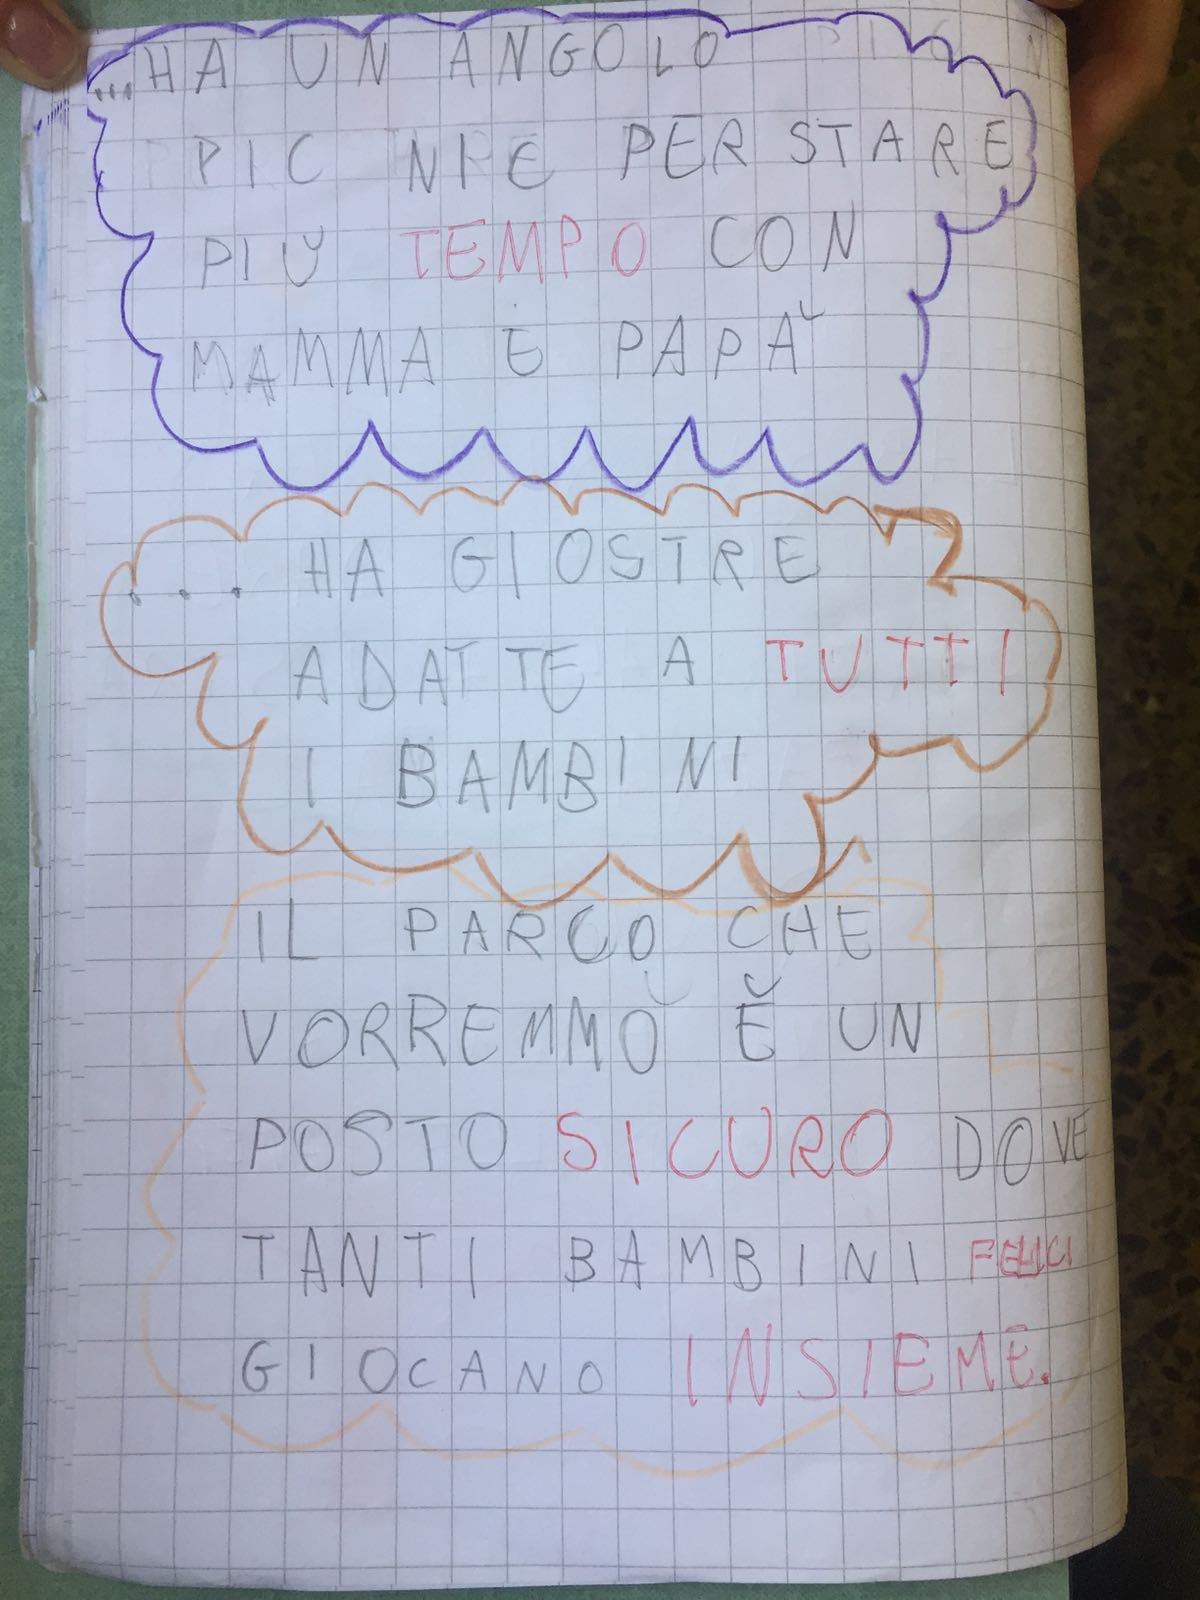 ...HA UN ANGOLO
PIC NIC PER STARE
PIÙ TEMPO CON
MAMMA E PAPÀ
... HA GIOSTRE
ADATTE A TUTTI
I BAMBINI
IL PARCO CHE
VORREMMO È UN
POSTO SICURO DOVE
TANTI BAMBINI FELICI
GIOCANO INSIEME.